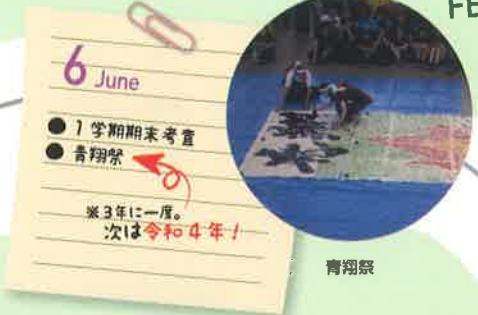 6 June
● 1学期期末考査
● 青翔祭
※3年に一度。
次は令和4年！
青翔祭